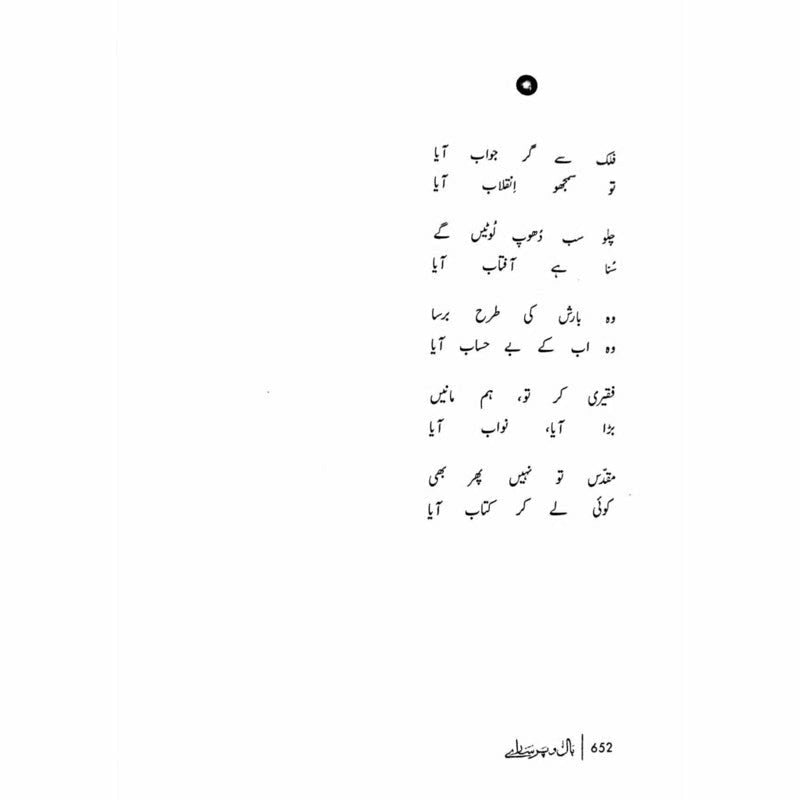 فلک سے گر جواب آیا
تو سمجھو اِنقلاب آیا
چلو سب دُھوپ لُوٹیں گے
سُنا ہے آفتاب آیا
وہ بارش کی طرح برسا
وہ اب کے بے حساب آیا
فقیری کر تو، ہم مانیں
بڑا آیا، نواب آیا
مقدّس تو نہیں پھر بھی
کوئی لے کر کتاب آیا
652 | بال و پر سارے